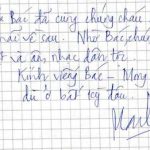 Bác đã cùng chúng cháu
về sau. Nhờ Bác, cháu
và âm nhạc dân tộc
Kính viếng Bác – Mong
dù ở bất cứ đâu.